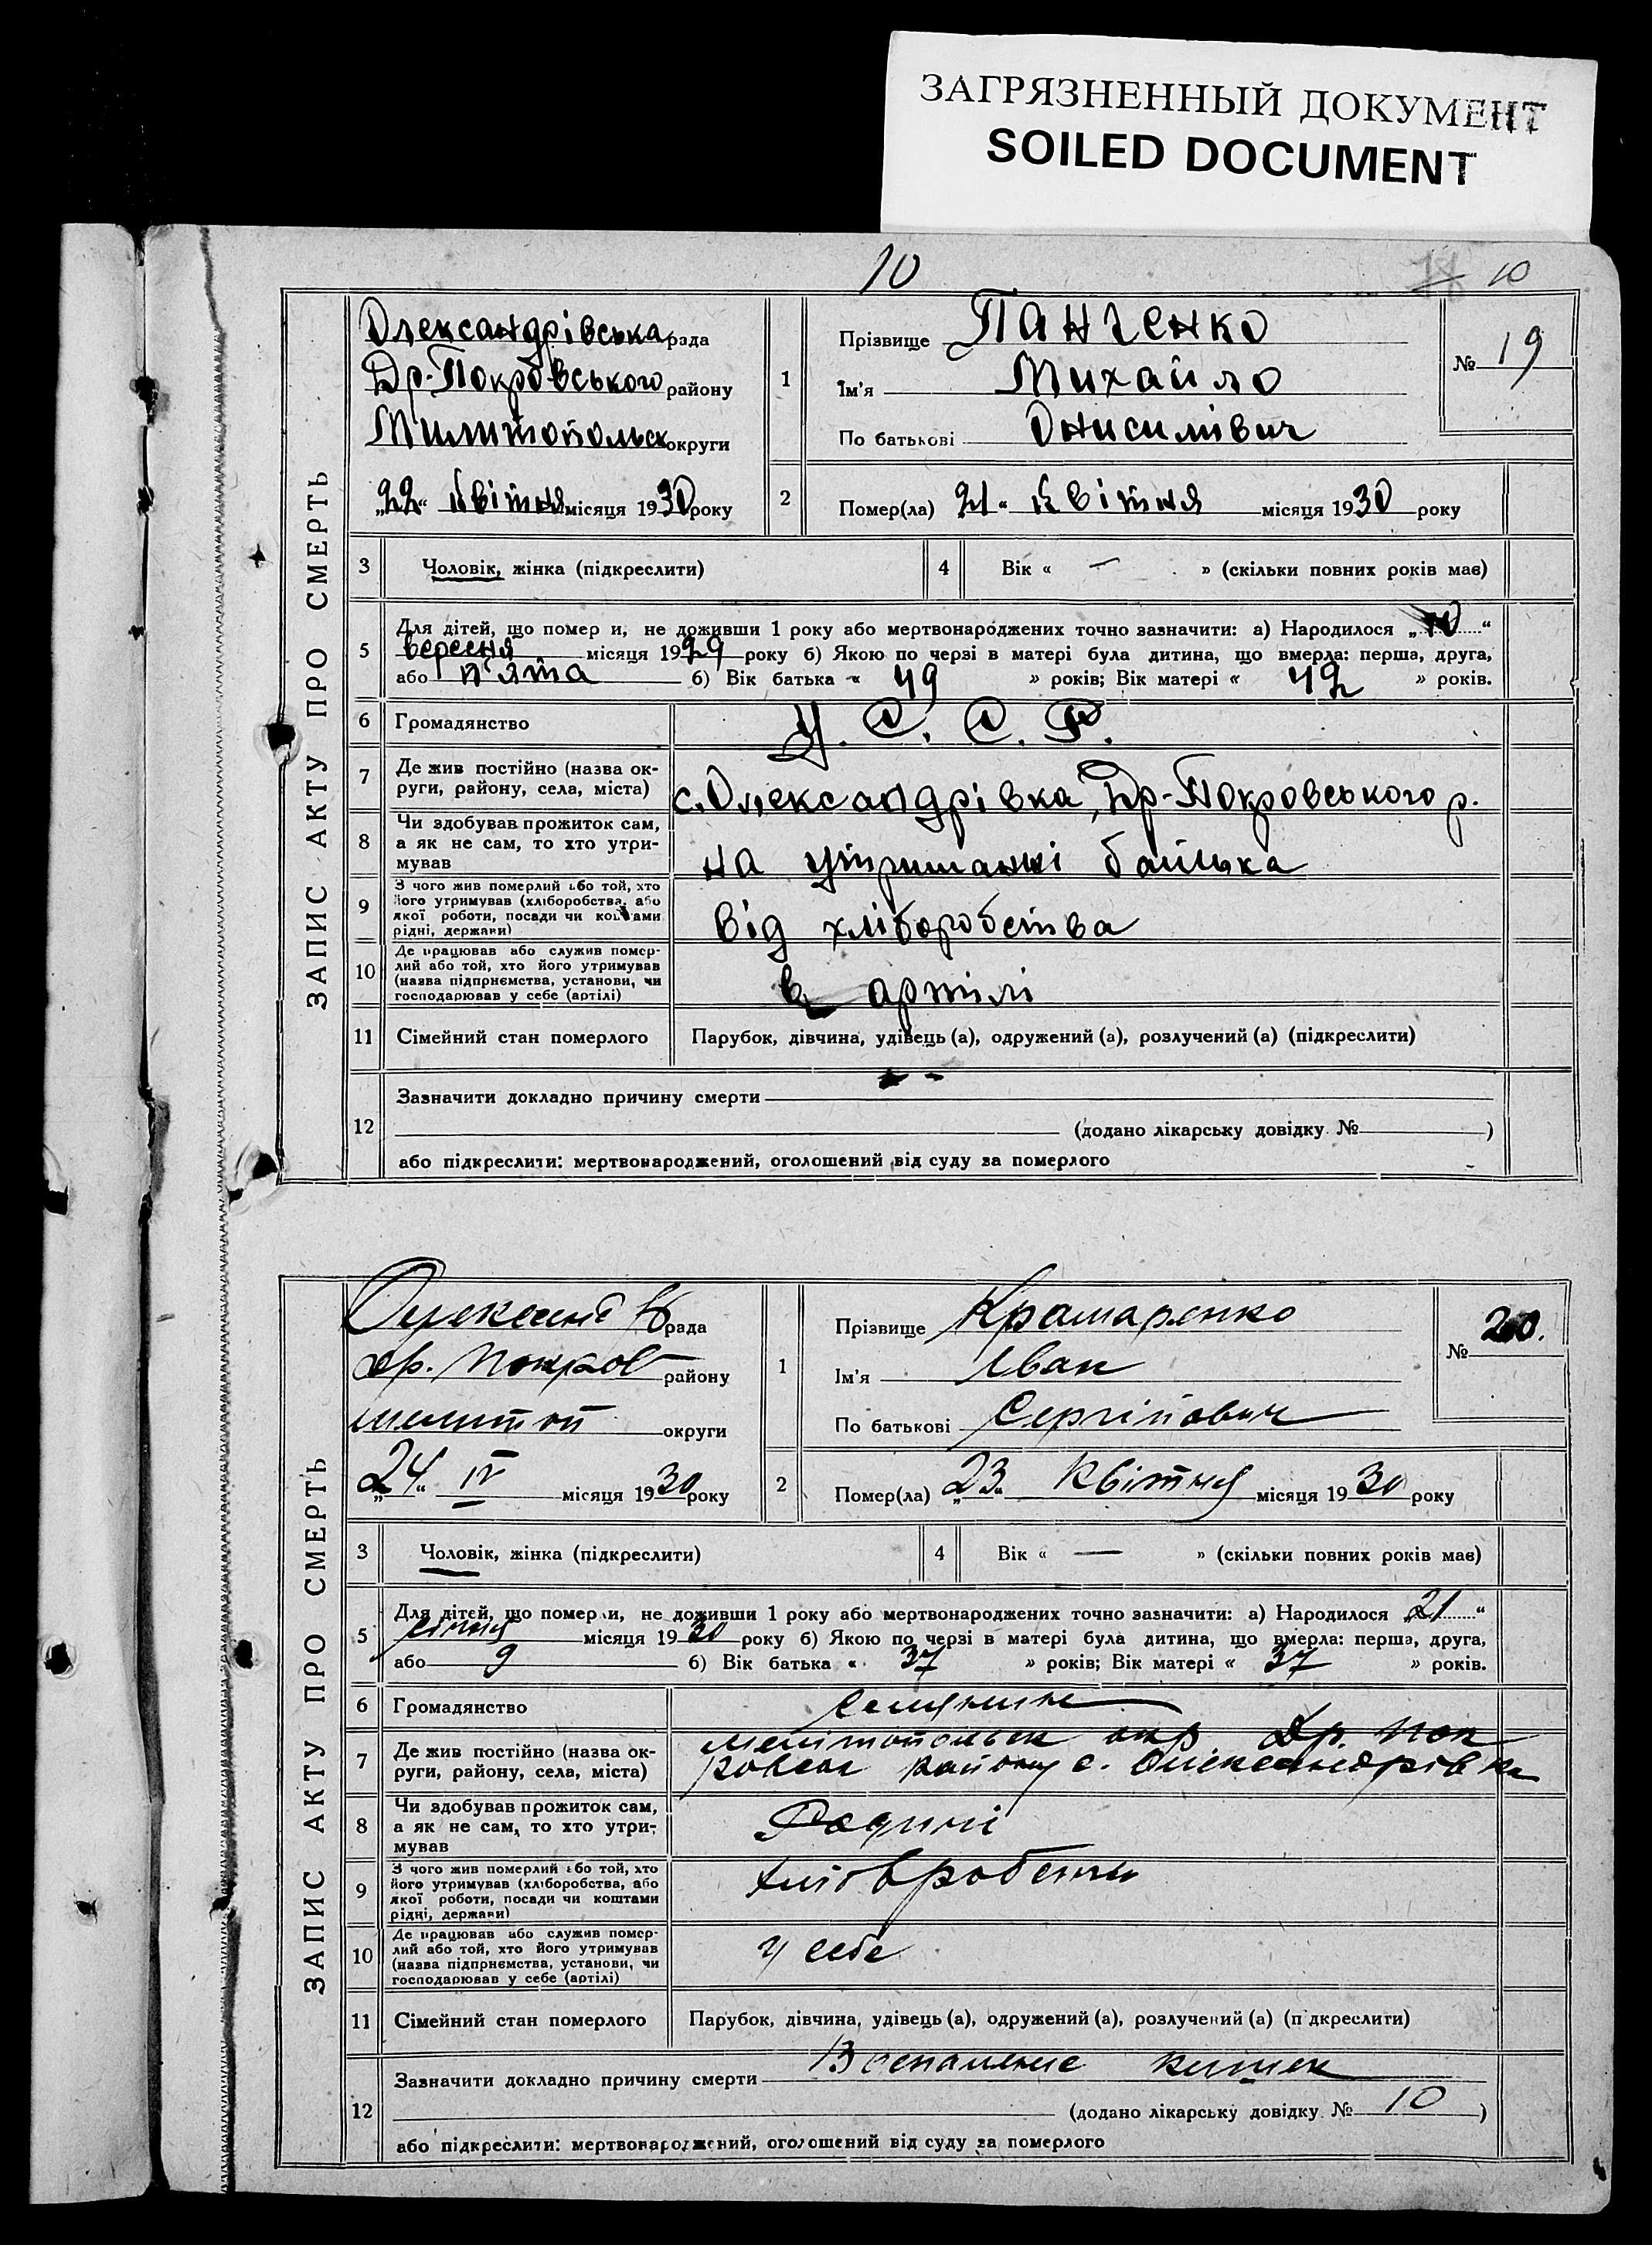 ЗАГРЯЗНЕННЫЙ ДОКУМЕНТ
SOILED DOCUMENT
10
10
ЗАПИС АКТУ ПРО СМЕРТЬ
Олександрівська рада
Др-Покровського району
Милитопольск округи
„22“ квітня місяця 1930 року
1
Прізвище Панченко
Ім'я Михайло
По батькові Онисилівич
№ 19
2
Помер(ла) 21 “ квітня місяця 1930 року
3 Чоловік, жінка (підкреслити)
4 Вік « — » (скільки повних років має)
5 Для дітей, що помер и, не доживши 1 року або мертвонароджених точно зазначити: а) Народилося „10“
вересня місяця 1929 року б) Якою по черзі в матері була дитина, що вмерла: перша, друга,
або п'ята б) Вік батька « 49 » років; Вік матері « 42 » років.
6 Громадянство У. С. С. Р.
7 Де жив постійно (назва ок-
руги, району, села, міста) с. Олександрівка, Др-Покровського р.
8 Чи здобував прожиток сам,
а як не сам, то хто утри-
мував на утриманні батька
9 З чого жив померлий або той, хто
його утримував (хліборобства, або
якої роботи, посади чи коштами
рідні, держави) від хліборобства
10 Де працював або служив помер-
лий або той, хто його утримував
(назва підприємства, установи, чи
господарював у себе (артілі) в артілі
11 Сімейний стан померлого Парубок, дівчина, удівець (а), одружений (а), розлучений (а) (підкреслити)
12 Зазначити докладно причину смерти
(додано лікарську довідку №)
або підкреслити: мертвонароджений, оголошений від суду за померлого
ЗАПИС АКТУ ПРО СМЕРТЬ
рада
др. Покров району
мелитоп округи
„24“ IV місяця 1930 року
1
Прізвище Крамаренко
Ім'я Іван
По батькові Сергійович
№ 20.
2
Помер(ла) „23“ Квітня місяця 1930 року
3 Чоловік, жінка (підкреслити)
4 Вік « — » (скільки повних років має)
5 Для дітей, що помер и, не доживши 1 року або мертвонароджених точно зазначити: а) Народилося „21“
січня місяця 1930 року б) Якою по черзі в матері була дитина, що вмерла: перша, друга,
або 9 б) Вік батька « 37 » років; Вік матері « 37 » років.
6 Громадянство
7 Де жив постійно (назва ок-
руги, району, села, міста) мелітопольск окр. Др. Пок
ровськ району с. Олександрівка
8 Чи здобував прожиток сам,
а як не сам, то хто утри-
мував Родині
9 З чого жив померлий або той, хто
його утримував (хліборобства, або
якої роботи, посади чи коштами
рідні, держави)
10 Де працював або служив помер-
лий або той, хто його утримував
(назва підприємства, установи, чи
господарював у себе (артілі) у себе
11 Сімейний стан померлого Парубок, дівчина, удівець (а), одружений (а), розлучений (а) (п дкреслити)
12 Зазначити докладно причину смерти Воспаление кишек
(додано лікарську довідку № 10)
або підкреслити: мертвонароджений, оголошений від суду за померлого